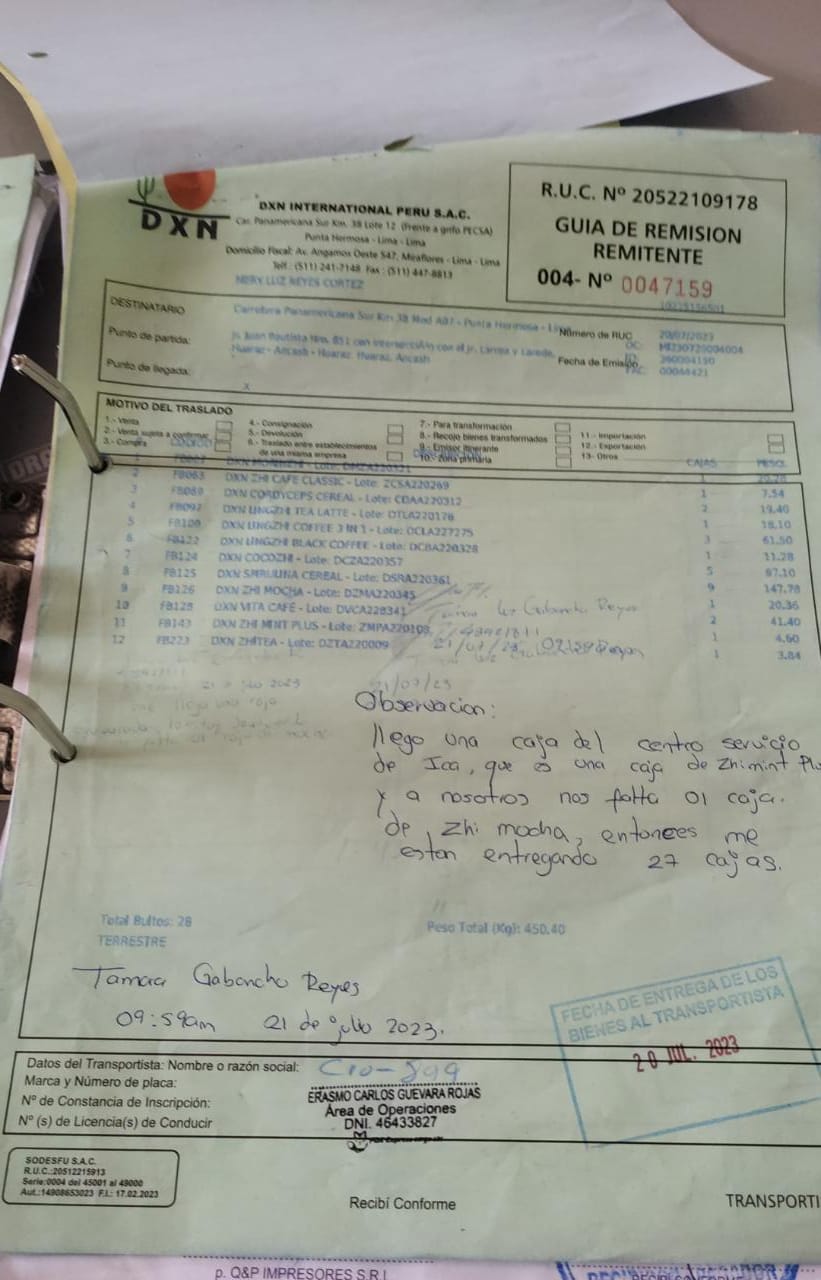 DXN
DXN INTERNATIONAL PERU S.A.C.
Car. Panamericana Sur Km. 38 Lote 12 (Frente a grifo PECSA)
Punta Hermosa - Lima - Lima
Domicilio Fiscal: Av. Angamos Oeste 547, Miraflores - Lima - Lima
Telf.: (511) 241-7148 Fax : (511) 447-8813
R.U.C. Nº 20522109178
GUIA DE REMISION
REMITENTE
004- Nº 0047159
NERY LUZ REYES CORTEZ
DESTINATARIO
Carretera Panamericana Sur Km 38 Mod A07 - Punta Hermosa -
Número de RUC
20/07/2023
Punto de partida:
Jr. Juan Bautista Nro. 851 con interseccion con el jr. Larrea y Laredo,
Huaraz - Ancash - Huaraz, Huaraz, Ancash
Fecha de Emisión
00044421
Punto de llegada:
X
MOTIVO DEL TRASLADO
1.- Venta
2.- Venta sujeta a confirmar
3.- Compra
4.- Consignación
5.- Devolución
6.- Traslado entre establecimientos
de una misma empresa
7.- Para transformación
8.- Recojo bienes transformados
9.- Emisor itinerante
10.- Zona primaria
11.- Importación
12.- Exportación
13.- Otros
CAJAS PESO.
2 FB063 DXN ZHI CAFE CLASSIC - Lote: ZCSA220269 1 7.54
3 FB089 DXN CORDYCEPS CEREAL - Lote: CDAA220312 2 19.40
4 FB092 DXN LINGZHI TEA LATTE - Lote: DTLA220176 1 18.10
5 FB100 DXN LINGZHI COFFEE 3 IN 1 - Lote: DCLA227275 3 61.50
6 FB122 DXN LINGZHI BLACK COFFEE - Lote: DCBA220328 1 11.28
7 FB124 DXN COCOZHI - Lote: DCZA220357 5 87.10
8 FB125 DXN SPIRULINA CEREAL - Lote: DSRA220361 9 147.78
9 FB126 DXN ZHI MOCHA - Lote: DZMA220345 1 20.36
10 FB128 DXN VITA CAFÉ - Lote: DVCA228341 2 41.40
11 FB143 DXN ZHI MINT PLUS - Lote: ZMPA220109 1 4.60
12 FB223 DXN ZHITEA - Lote: DZTA220009 1 3.84
21/07/23
Observacion:
llego una caja del centro servicio
de Ica, que es una caja de Zhimint Plu
y a nosotros nos falta 01 caja.
de Zhi mocha, entonces me
estan entregando 27 cajas.
Total Bultos: 28
Peso Total (Kg): 450.40
TERRESTRE
Tamara Gabancho Reyes
09:59am 21 de julio 2023.
FECHA DE ENTREGA DE LOS
BIENES AL TRANSPORTISTA
20 JUL. 2023
Datos del Transportista: Nombre o razón social:
Marca y Número de placa:
Nº de Constancia de Inscripción:
Nº (s) de Licencia(s) de Conducir
ERASMO CARLOS GUEVARA ROJAS
Área de Operaciones
DNI. 46433827
SODESFU S.A.C.
R.U.C.:20512215913
Serie:0004 del 45001 al 49000
Aut.:14908653023 F.I.: 17.02.2023
Recibí Conforme
TRANSPORTI
p. Q&P IMPRESORES S.R.L